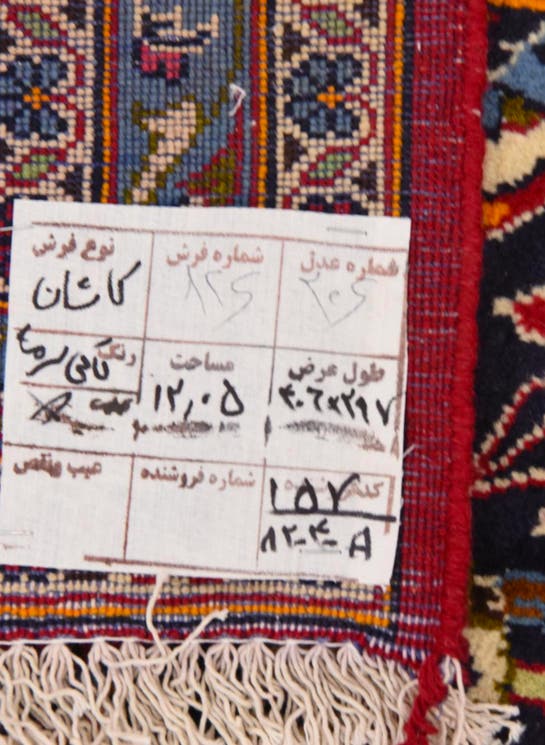 شماره عدل شماره فرش نوع فرش
۳۰۶ ۸۲۶ کاشان
طول عرض مساحت رنگ
۴۰۶×۲۹۷ ۱۲,۰۵ لاکی سرمه
شماره فروشنده عیب و نقص
۱۵۷
۸۲-۴-A